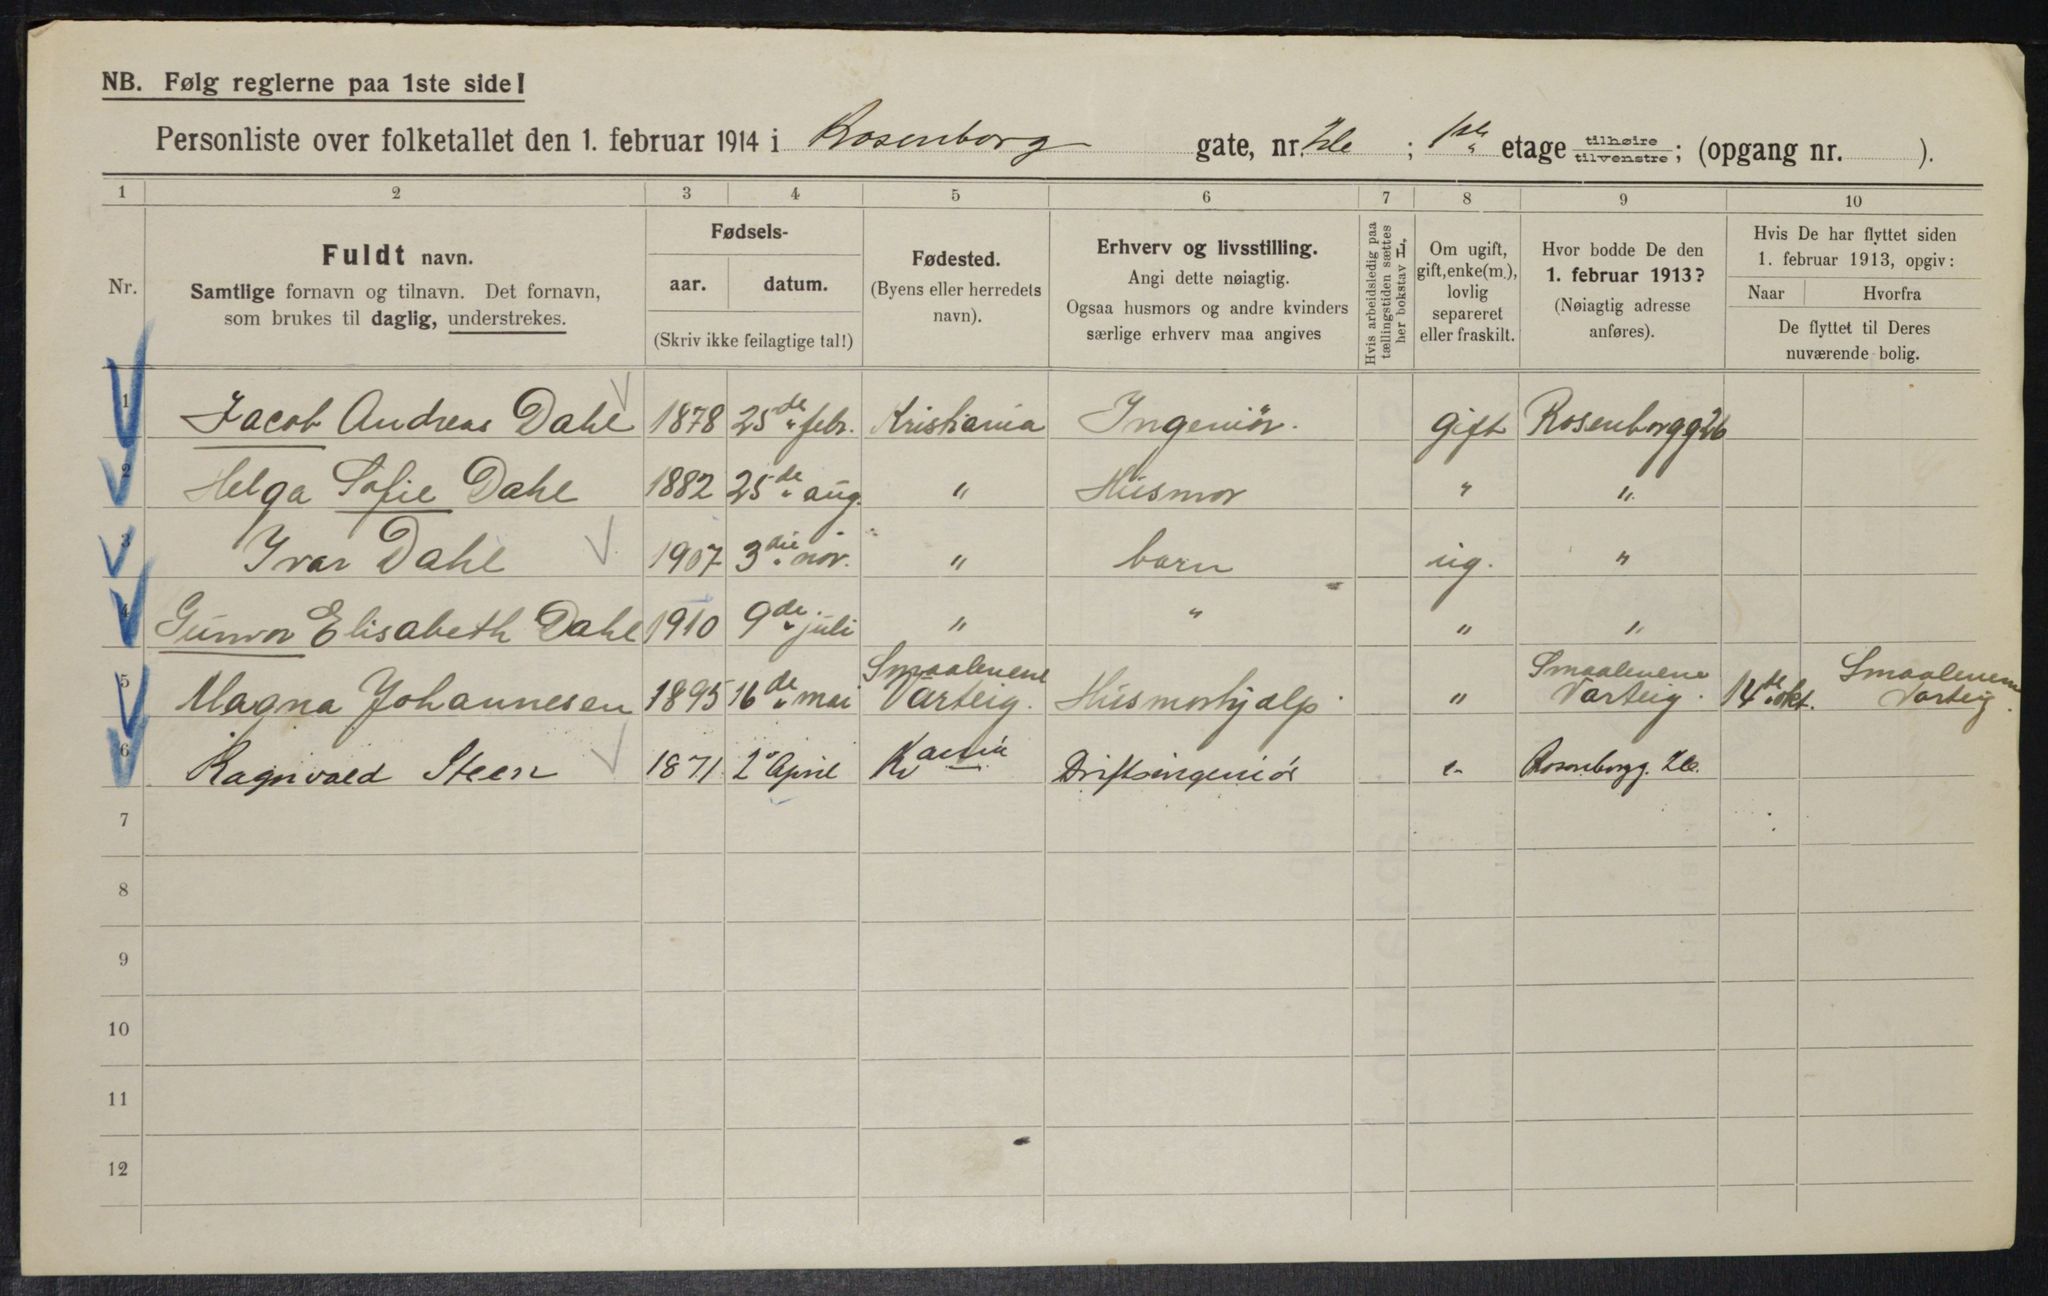 NB. Følg reglerne paa 1ste side!
Personliste over folketallet den 1. februar 1914 i Rosenborg gate, nr. ; 1ste etage tilhøire tilvenstre; (opgang nr. ).
1 2 3 4 5 6 7 8 9 10
Nr.
Fuldt navn.
Samtlige fornavn og tilnavn. Det fornavn,
som brukes til daglig, understrekes.
Fødsels-
aar. datum.
(Skriv ikke feilagtige tal!)
Fødested.
(Byens eller herredets
navn).
Erhverv og livsstilling.
Angi dette nøiagtig.
Ogsaa husmors og andre kvinders
særlige erhverv maa angives
Hvis arbeidsledig paa
tællingstiden sættes
her bokstav L.
Om ugift,
gift, enke(m.),
lovlig
separeret
eller fraskilt.
Hvor bodde De den
1. februar 1913?
(Nøiagtig adresse
anføres).
Hvis De har flyttet siden
1. februar 1913, opgiv:
Naar Hvorfra
De flyttet til Deres
nuværende bolig.
1 Jacob Andreas Dahl 1878 25de febr. Kristiania Ingeniör. gift Rosenborgg
2 Helga Sofie Dahl 1882 25de aug. " Husmor " "
3 Ivar Dahl 1907 3die nov. " barn ug. "
4 Gunvor Elisabeth Dahl 1910 9de juli " " " "
5 Magna Johannesen 1895 16de mai Smaalenene Varteig. Husmorhjælp " Smaalenene Varteig. 14de okt. Smaalenene Varteig.
6 Ragnvald Steen 1871 2 April Kr.ania Driftsingeniör " Rosenborgg.
7
8
9
10
11
12